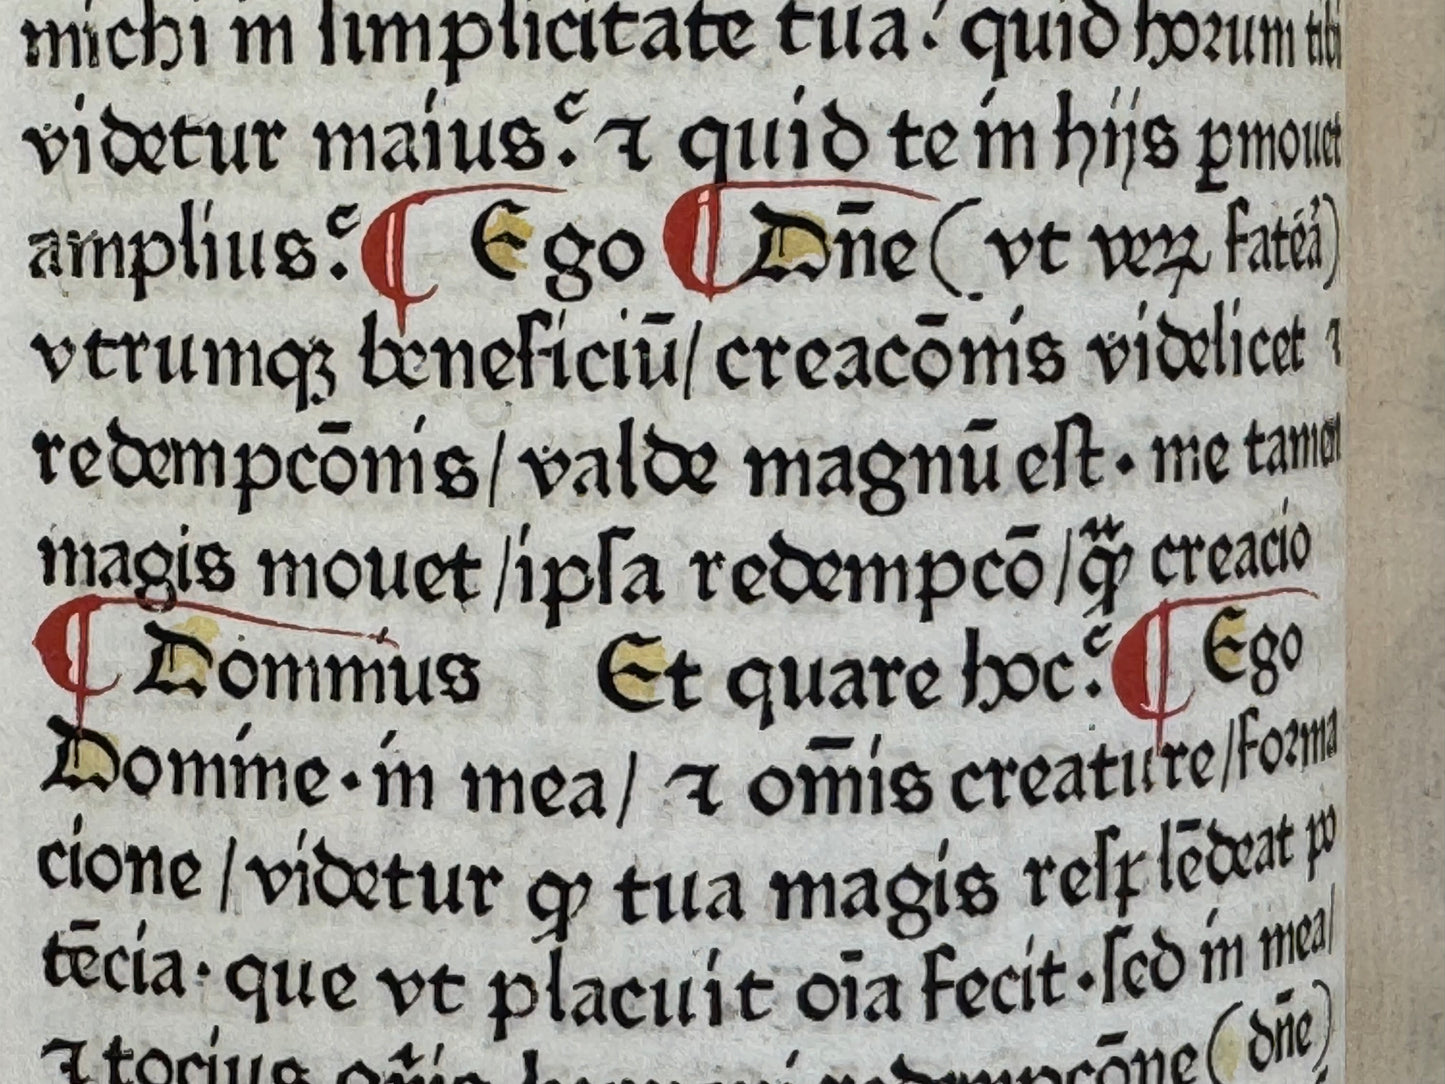 michi in simplicitate tua? quid horum tibi
videtur maius? ⁊ quid te in hijs ꝑmouet
amplius? ¶ Ego ¶ Dn̄e ( vt veꝝ fateaͬ )
vtrumqꝫ beneficiū / creacōnis videlicet ⁊
redempcōnis / valde magnū est · me tamen
magis mouet / ipſa redempcō / qͣꝫ creacio
¶ Dominus Et quare hoc? ¶ Ego
Domine · in mea / ⁊ om̄is creature / forma
cione / videtur ꝙ tua magis reſplēdeat po
tēcia · que vt placuit oīa fecit · ſed in mea /
⁊ tocius redempcōne ( dn̄e )